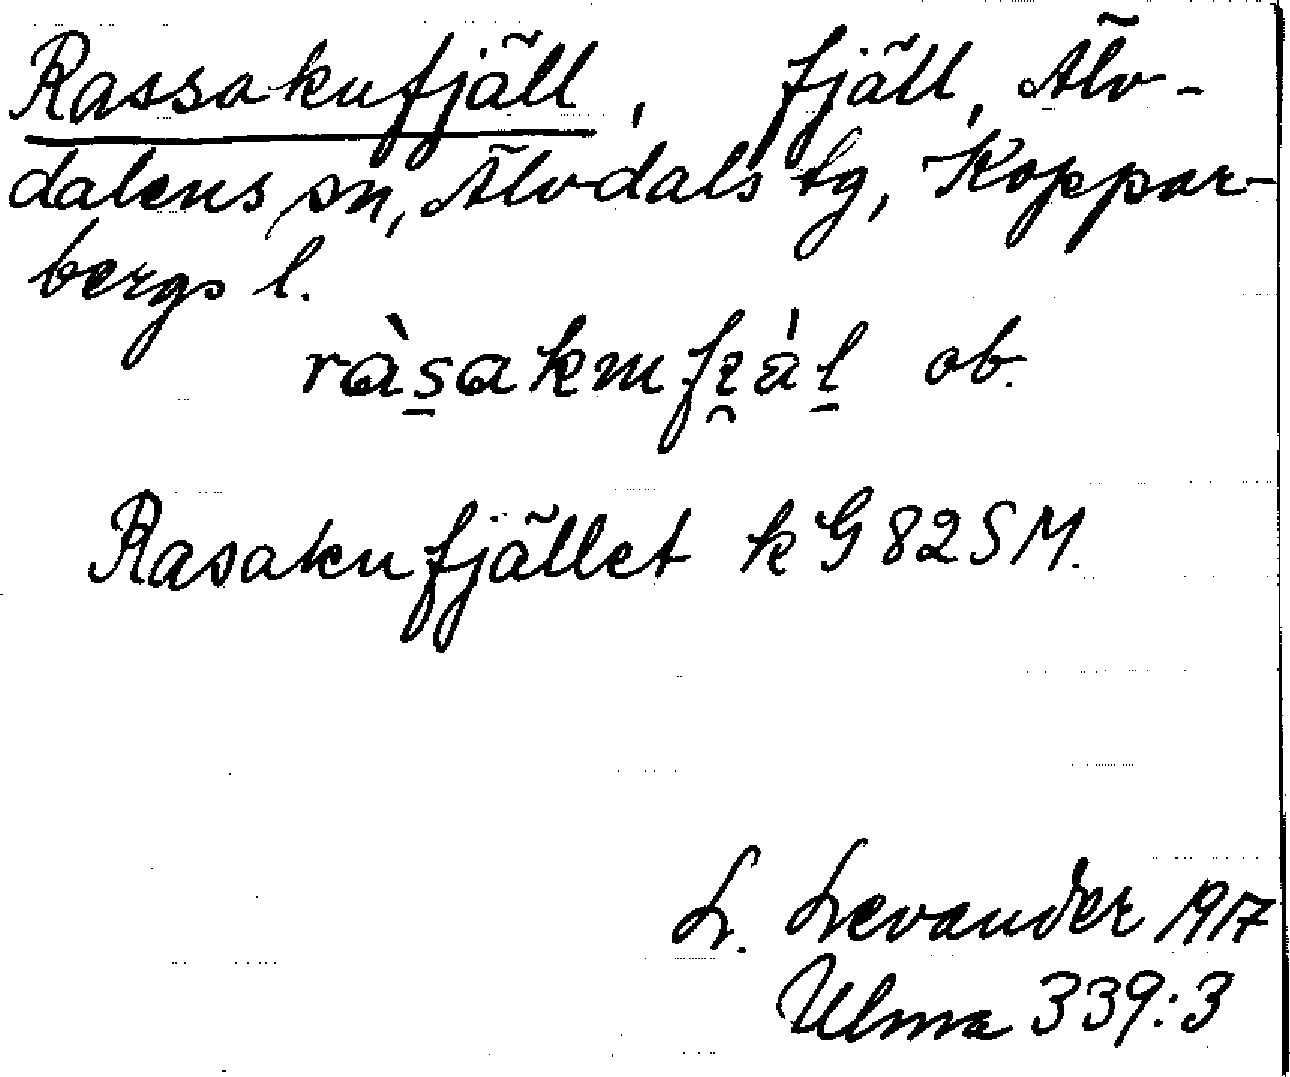 Rassakufjäll, fjäll, Älv-
dalens sn, Älvdals tg, Koppar-
bergs l.
ràs̲akmfi̯ál̲ ob.
Rasakufjället kG82SM.
L. Levander 1917
Ulma 339:3